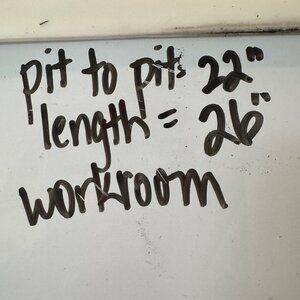 pit to pit: 22"
length = 26"
workroom